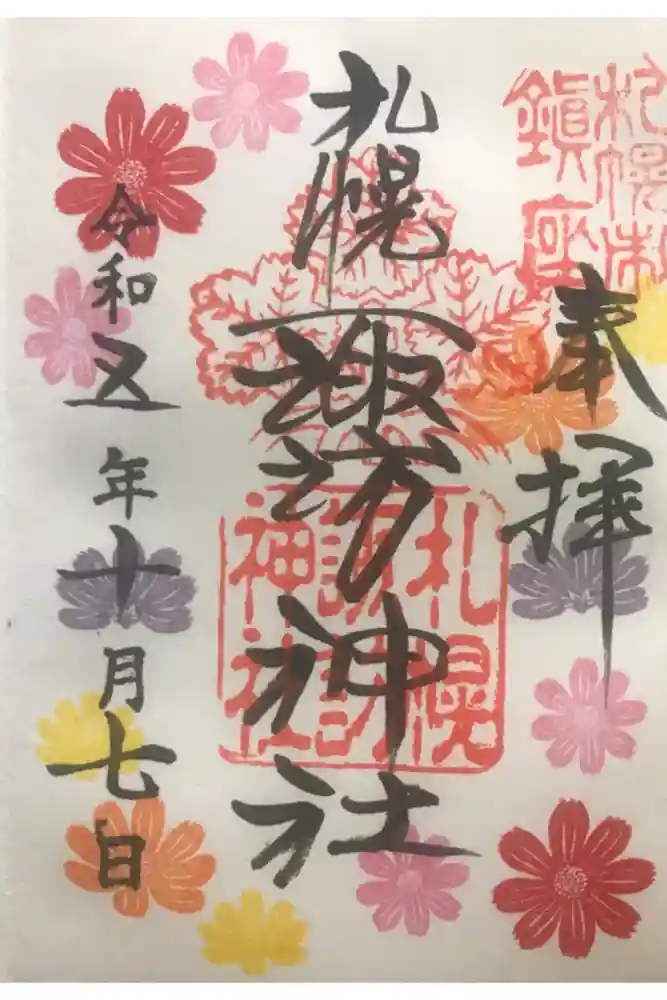 札幌市
鎮座
奉拝
札幌諏訪神社
札幌
諏訪
神社
令和五年十月七日